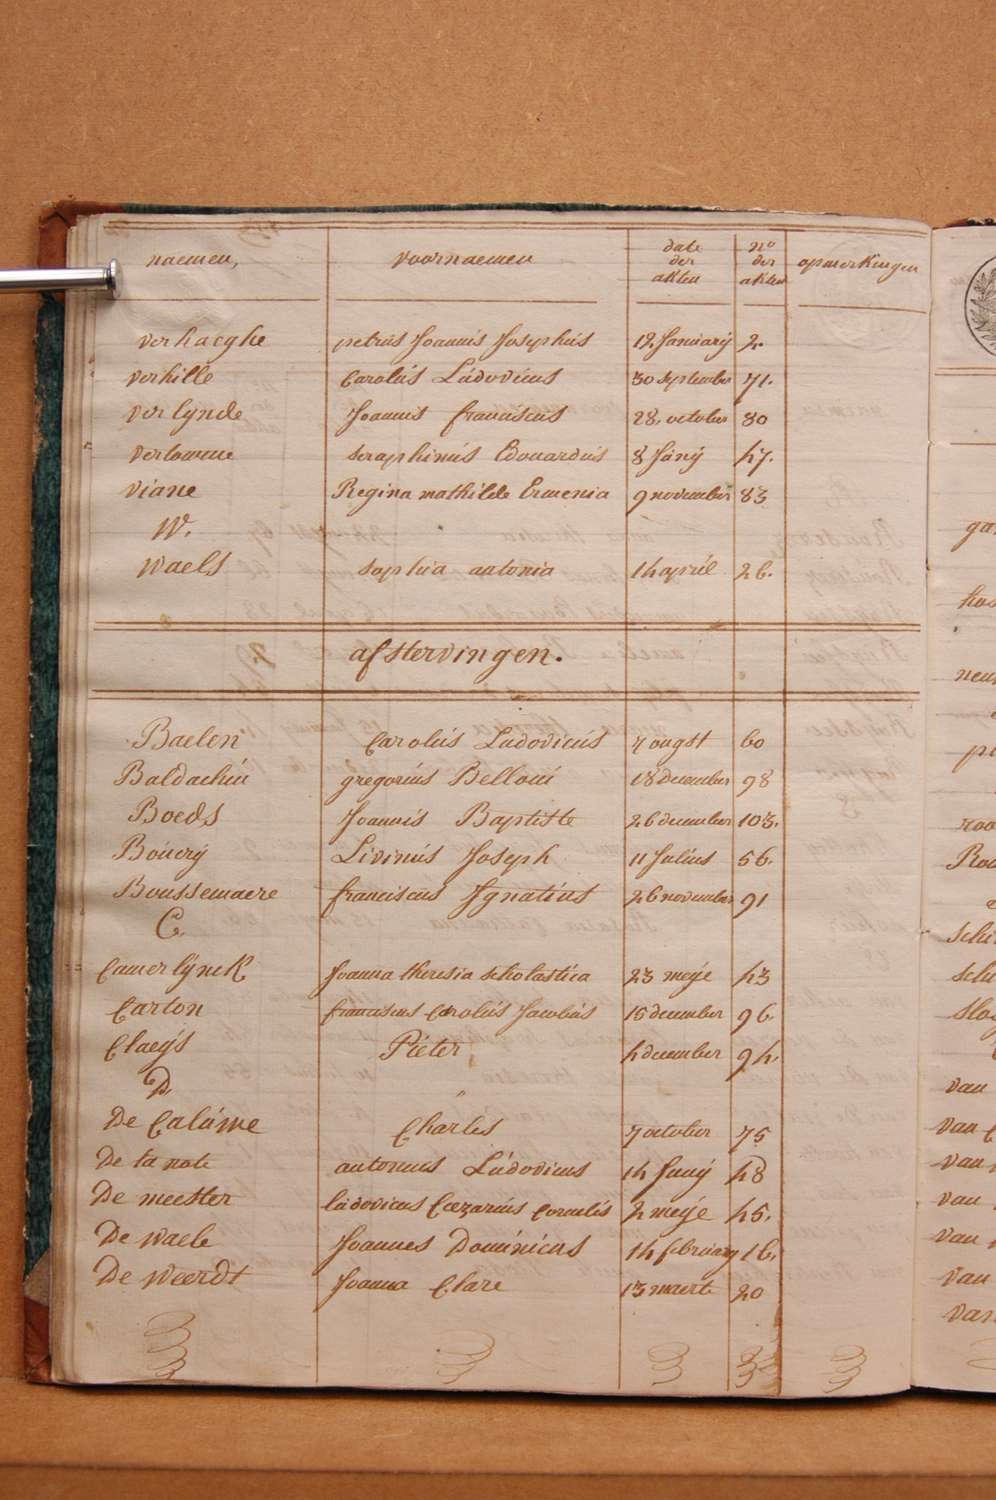 naemen, voornaemen date der akten n° der akten opmerkingen
verhaeghe petrus Joannis Josephus 12. January 2.
verhille Carolus Ludovicus 30 september 71.
verlynde Joannis franciscus 28. october 80
seraphinus Edouardus 8 Juny 47.
viane Regina mathilde Ermenia 9 november 83
W.
waels sophia antonia 14 april 26.
afstervingen.
Baelen Carolus Ludovicus 7 ougst 60
Baldachin gregorius Belloni 18 december 98
Boeds Joannis Baptiste 26 december 103.
Boucry Livinus Joseph 11 Julius 56.
Boussemaere franciscus Ignatius 26 november 91
C.
Camerlynck Joanna theresia scholastica 23 meye 43
Carton franciscus Carolus Jacobus 15 december 96.
Claeys Pieter 4 december 94.
D.
De Calúwe Charles 7 october 75
De la note antonius Ludovicus 14 Juny 48
De meester ludovicus Cæzarius Cornelis 2 meye 45.
De waele Joannes Dominicus 14 february 16.
De weerdt Joanna Clare 13 maerte 20
van
van
van
van
van
van